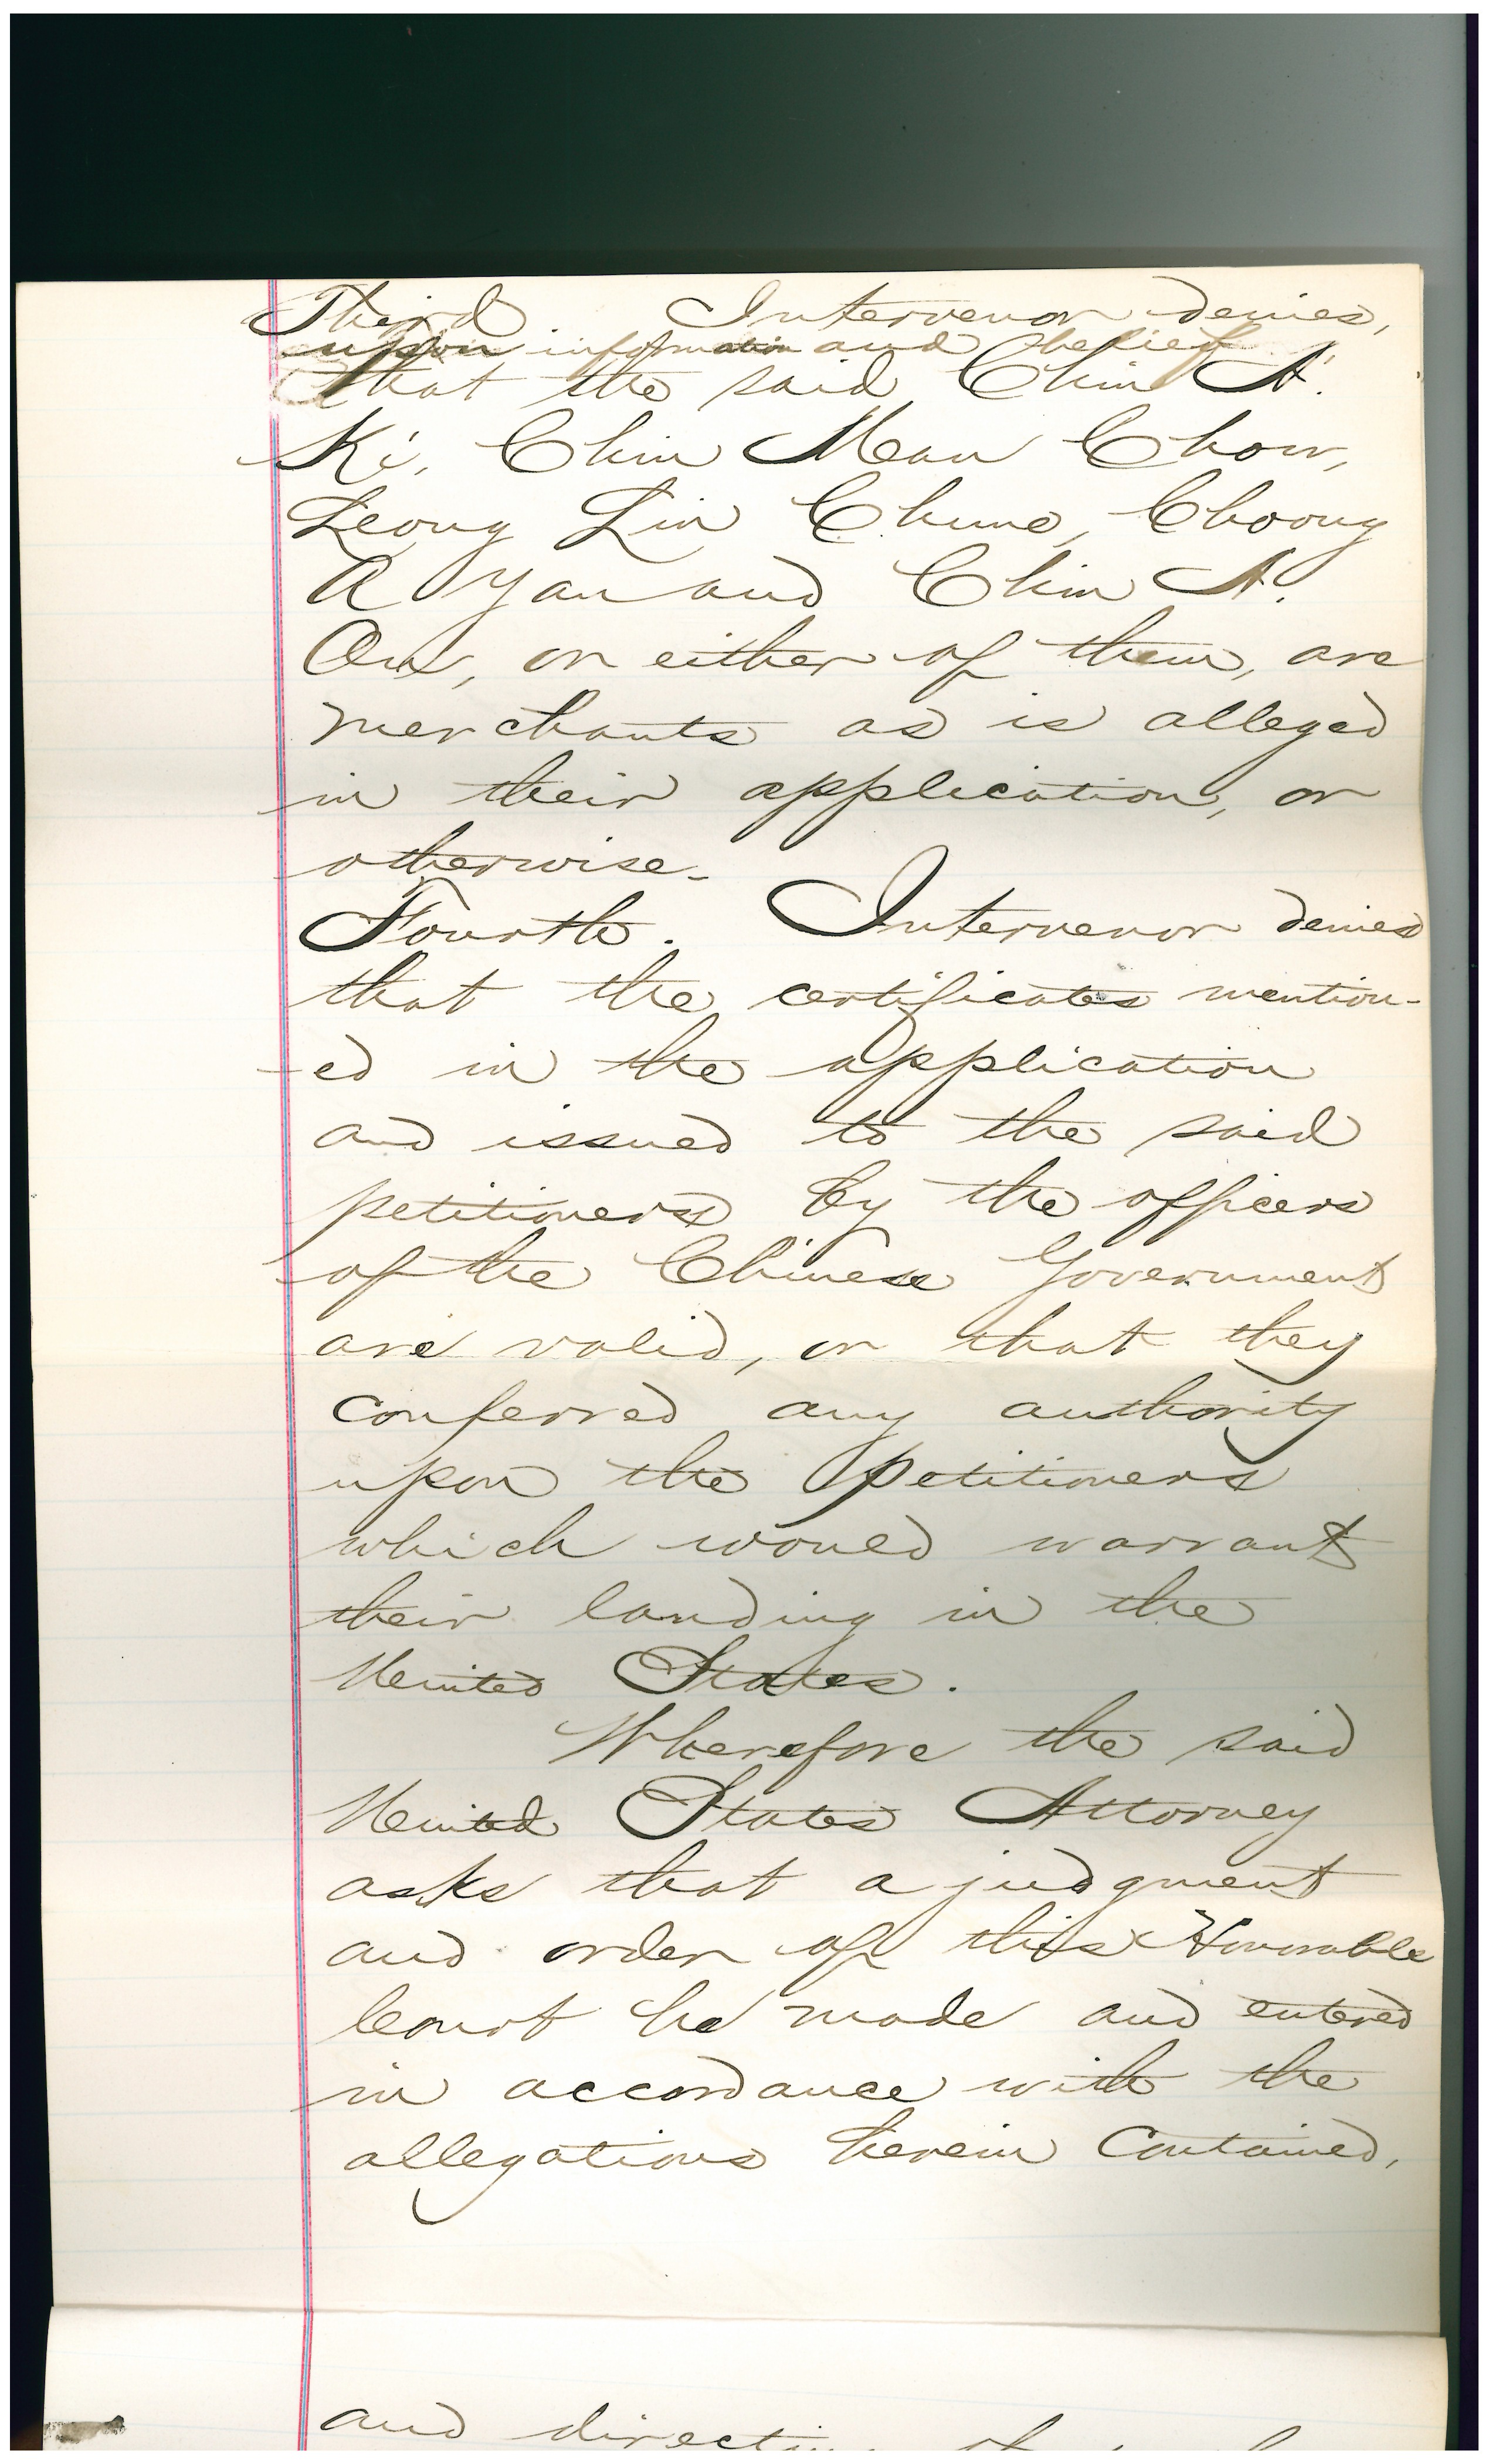 Third Intervenor denies,
upon information and belief
that the said Chin A.
Ki, Chin Mean Chow,
Leong Lin Chune, Choong
A Yan and Chin A.
On, or either of them, are
merchants as is alleged
in their application, or
otherwise.
Fourth. Intervenor denies
that the certificates mention-
ed in the application
and issued to the said
petitioners by the officers
of the Chinese Government
are valid, or that they
conferred any authority
upon the petitioners
which would warrant
their landing in the
United States.
Wherefore the said
United States Attorney
asks that a judgment
and order of this Honorable
Court be made and entered
in accordance with the
allegations herein contained,
and directing